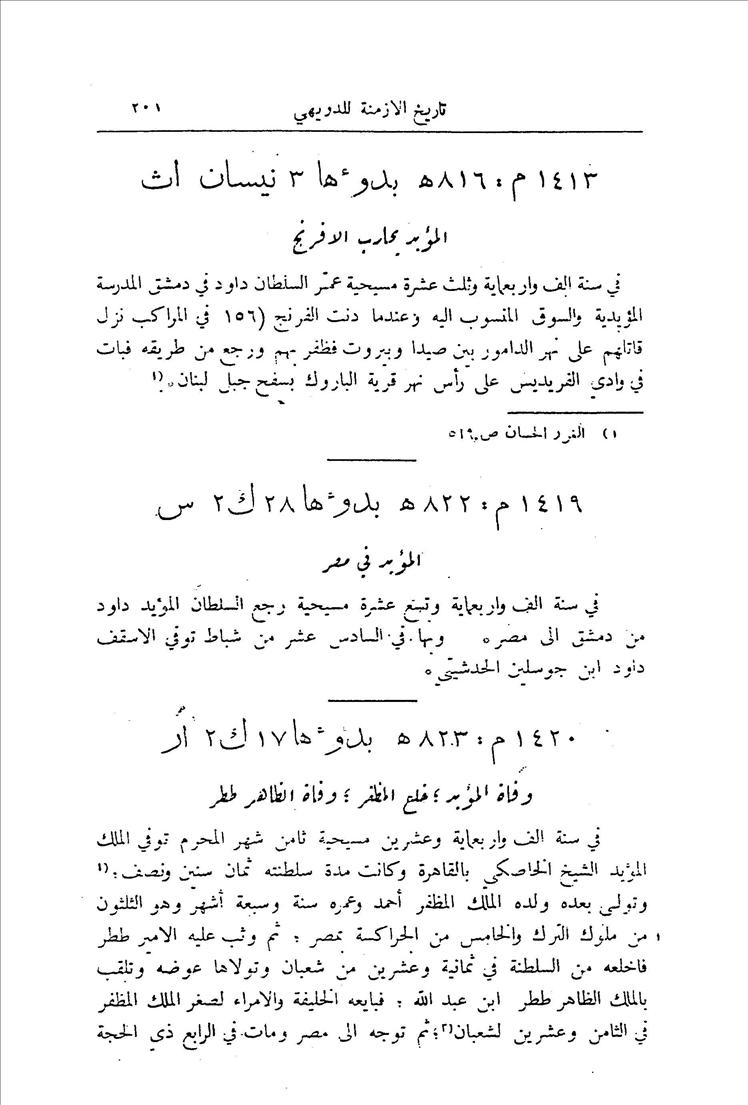 تاريخ الازمنة للدويهي ٢٠١
١٤١٣ م : ٨١٦ ه بدوءها ٣ نيسان اث
المؤيد يحارب الافرنج
في سنة الف واربعماية وثلث عشرة مسيحية عمّر السلطان داود في دمشق المدرسة
المؤيدية والسوق المنسوب اليه وعندما دنت الفرنج (١٥٦ في المراكب نزل
قاتلهم على نهر الدامور بين صيدا وبيروت فظفر بهم ورجع من طريقه فبات
في وادي الفريديس على رأس نهر قرية الباروك بسفح جبل لبنان.(١
١) الغرر الحسان ص ٥١٩
١٤١٩ م : ٨٢٢ ه بدوءها ٢٨ ك ٢ س
المؤيد في مصر
في سنة الف واربعماية وتسع عشرة مسيحية رجع السلطان المؤيد داود
من دمشق الى مصر. وبها في السادس عشر من شباط توفي الاسقف
داود ابن جوسلين الحدشيتي.
١٤٢٠ م : ٨٢٣ ه بدوءها ١٧ ك ٢ أر
وفاة المؤيد ؛ خلع المظفر ؛ وفاة الظاهر ططر
في سنة الف واربعماية وعشرين مسيحية ثامن شهر المحرم توفي الملك
المؤيد الشيخ الخاصكي بالقاهرة وكانت مدة سلطنته ثمان سنين ونصف ؛(١
وتولى بعده ولده الملك المظفر أحمد وعمره سنة وسبعة أشهر وهو الثلثون
من ملوك الترك والخامس من الجراكسة بمصر ؛ ثم وثب عليه الامير ططر
فاخلعه من السلطنة في ثمانية وعشرين من شعبان وتولاها عوضه وتلقب
بالملك الظاهر ططر ابن عبد الله ؛ فبايعه الخليفة والامراء لصغر الملك المظفر
في الثامن وعشرين لشعبان(٢؛ ثم توجه الى مصر ومات في الرابع ذي الحجة